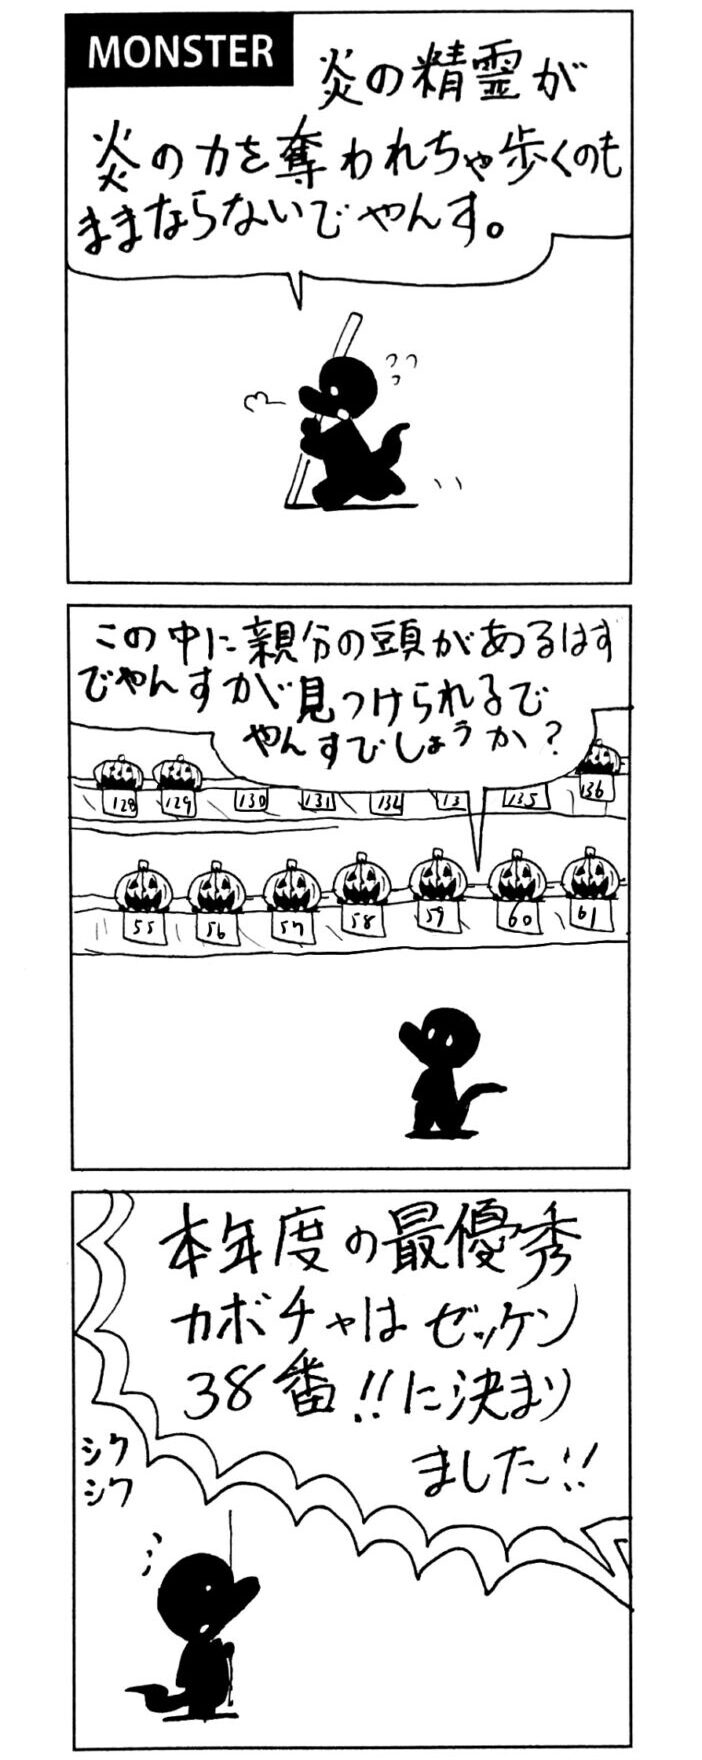 MONSTER
炎の精霊が
炎の力を奪われちゃ歩くのも
ままならないでやんす。
この中に親分の頭があるはず
でやんすが見つけられるで
やんすでしょうか?
128 129 130 131 132 13 135 136
55 56 57 58 59 60 61
本年度の最優秀
カボチャはゼッケン
38番!!に決まり
ました!!
シク
シク